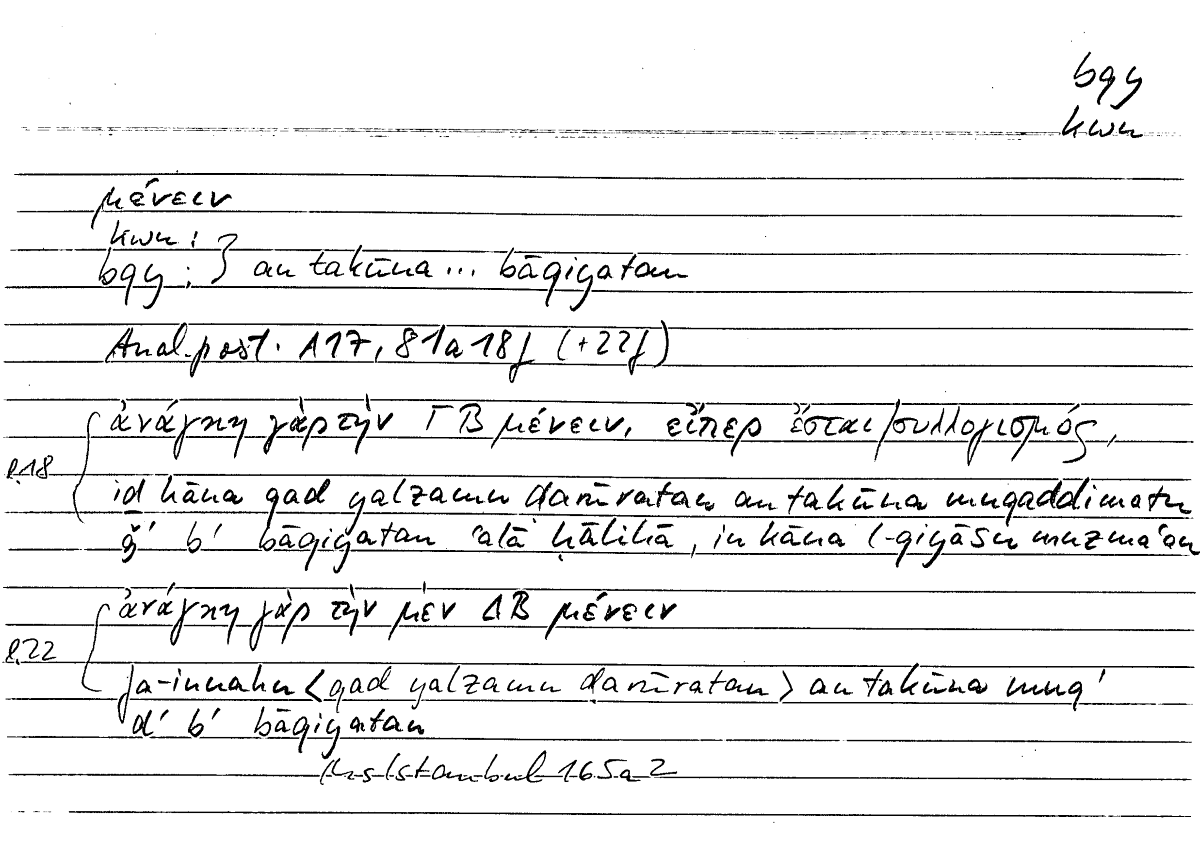 bqy
kwn
μένειν
kwn :
bqy : } an takūna ... bāqiyatan
Anal. post. A17, 81a18f (+22f)
ἀνάγκη γὰρ τὴν ΓΒ μένειν, εἴπερ ἔσται/συλλογισμός,
l.18
iḏ kāna qad yalzamu ḍarūratan an takūna muqaddimatu
ǧ' b' bāqiyatan ʿalā ḥālihā, in kāna l-qiyāsu muzmaʿan
ἀνάγκη γὰρ τὴν μὲν ΔΒ μένειν
l.22
fa-innahu <qad yalzamu ḍarūratan> an takūna muq'
d' b' bāqiyatan
Hs Istambul 165a2